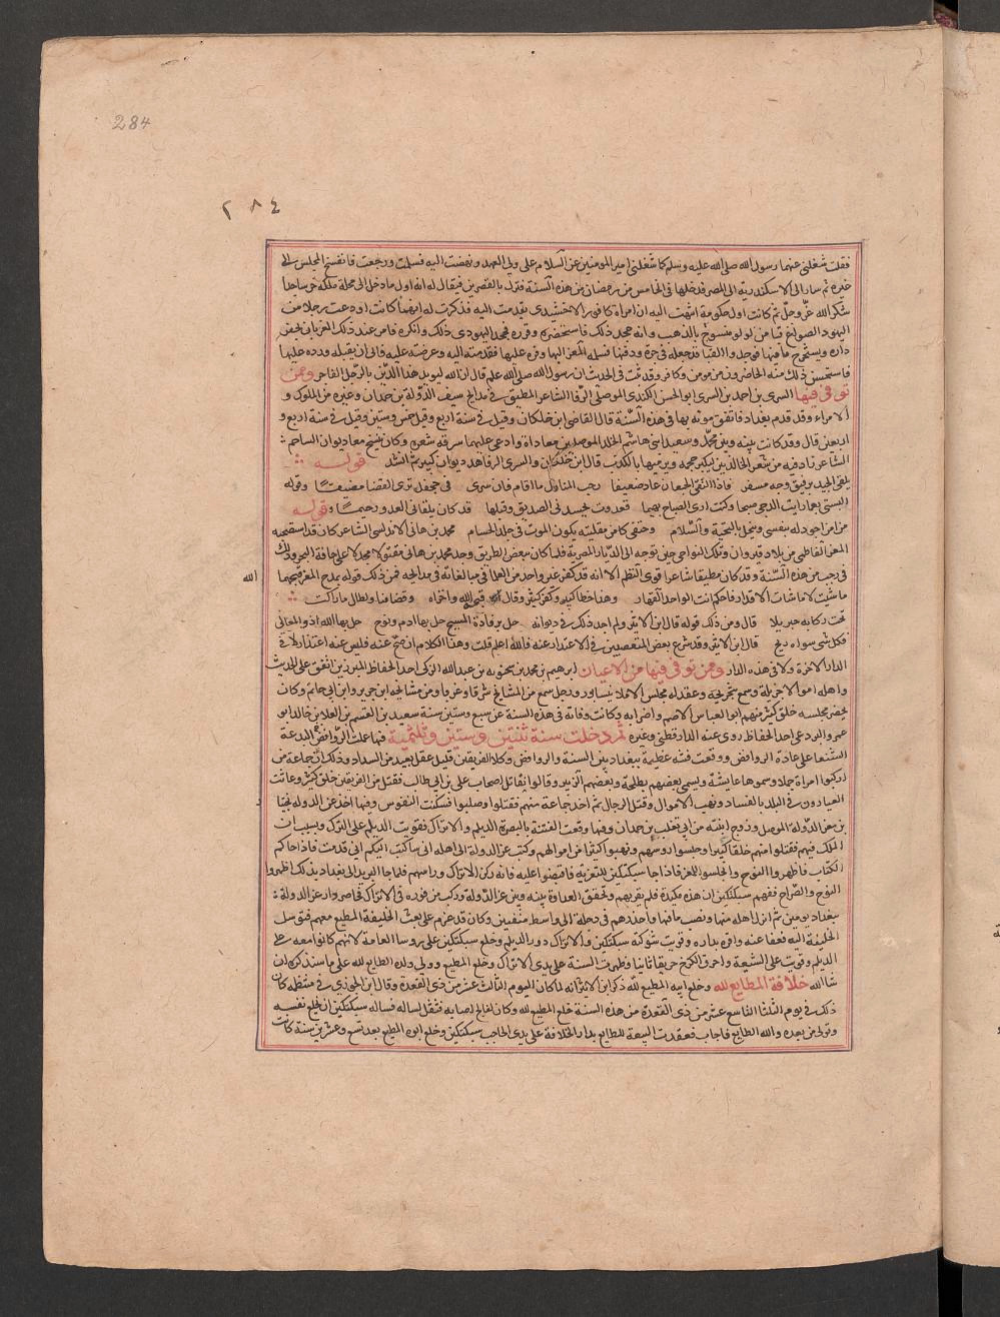 284
٢٨٤
فقلت شغلني عنهما رسول الله صلى الله عليه وسلم كما شغلني امير المومنين عن السلام على ولي العهد ونهضت اليه فسلمت ورجعت فانفسح المجلس الى
غيره ثم سار الى الاسكندرية الى المصر فدخلها في الخامس من رمضان من هذه السنة فنزل بالقصرين فيقال له انه اول ما دخل الى محلة ملكه خر ساجدا
شكرا لله عز وجل ثم كانت اول حكومة انتهت اليه ان امراة كافور الاخشيدي تقدمت اليه فذكرت له انها كانت اودعت رجلا من
اليهود الصواغ قبا من لولو منسوج بالذهب وانه جحد ذلك فاستحضره وقرره فجحد اليهودي ذلك وانكره فامر عند ذلك المعز ان يحفر
داره ويستخرج ما فيها فوجدوا القبا قد جعله في جرة ودفنها فسلمه المعز اليها ووفره عليها فقدمته اليه وعرضته عليه فابى ان يقبله ورده عليها
فاستحسن ذلك منه الحاضرون من مومن وكافر وقد ثبت في الحديث ان رسول الله صلى الله عليه قال ان الله ليويد هذا الدين بالرجل الفاجر وممن
توفي فيها السري بن احمد بن السري ابو الحسن الكندي الموصلي الرفا الشاعر المطبق في مدايح سيف الدولة بن حمدان وغيره من الملوك و
الامراء وقد قدم بغداد فاتفق موته بها في هذه السنة قال القاضي ابن خلكان وقيل في سنة اربع وقيل خمس وستين وقيل في سنة اربع و
اربعين قال وقد كانت بينه وبين محمد وسعيد ابني هاشم الخالد الموصليين معاداة وادعى عليهما سرقه شعره وكان ينسخ معا ديوان الساحم
الشاعر قال ابن خلكان والسري الرفا هذا ديوان كبير ثم انشد قوله
يلقى الجيد برقيق وجه مسفر فاذا التقى الجمعان عاد صفيقا رحب المنازل ما اقام فان سرى في جحفل ترك الفضا مضيقا وقوله
البستني نعما رايت الدجى صبحا وكنت ارى الصباح بهيما فغدوت يحسدني الصديق وقبلها قد كان يلقاني العدو رحيما وقوله
من اجود له بنفسي ويبخل بالتحية والسلام وحتفي كامن بمقلتيه كمون الموت في حد الحسام محمد بن هاني الاندلسي الشاعر كان قد استصحبه
المعز الفاطمي من بلاد قيروان وتلك النواحي حين توجه الى الديار المصرية فلما كان ببعض الطريق وجد محمد بن هاني مقتولا مجدلا على حافة البحر وذلك
في رجب من هذه السنة وقد كان مطبقا شاعرا قوي النظم الا انه قد كفره غير واحد من العلما في مبالغاته في مدايحه فمن ذلك قوله يمدح المعز قبحهما
الله
ما شئت لا ما شات الاقدار فاحكم فانت الواحد القهار وهذا خطا كبير وكفر كثير وقال قبح الله واخزاه ولطال ما زاحمت
تحت ركابه جبريلا قال ومن ذلك قوله قال ابن الاثير ولم اجد ذلك في ديوانه حل برقادة المسيح حل بها ادم ونوح حل بها الله ذو المعالي
فكل شي سواه ريح قال ابن الاثير وقد شرع بعض المتعصبين في الاعتذار عنه فالله اعلم قلت وهذا الكلام ان صح عنه فليس عنه اعتذار لا في
الدار الاخرة ولا في هذه الدار وممن توفي فيها من الاعيان ابرهيم بن محمد بن سختويه بن عبد الله المزكي احد الحفاظ المبرزين انفق على الحديث
واهله اموالا جزيلة وسمع بتخريجه وعقد له مجلس الاملا بنيسابور ورحل سمع من المشايخ شرقا وغربا ومن مشايخه ابن جرير وابن ابي حاتم وكان
يحضر مجلسه خلق كثير منهم ابو العباس الاصم واضرابه وكانت وفاته في هذه السنة عن سبع وستين سنة سعيد بن القسم بن العلا بن خالد ابو
عمرو البردعي احد الحفاظ روى عنه الدارقطني وغيره ثم دخلت سنة ثنتين وستين وثلثمية فيها عملت الروافض البدعة
الشنعا على عادة الروافض ووقعت فتنة عظيمة ببغداد بين السنة والروافض وكلا الفريقين قليل عقل بعيد من السداد وذلك ان جماعة من
اركبوا امراة جملا وسموها عايشة وتسمى بعضهم بطلحة وبعضهم الزبير وقالوا نقاتل اصحاب علي بن ابي طالب فقتل من الفريقين خلق كثير وعاثت
العيارون في البلد بالفساد ونهب الاموال وقتل الرجال ثم اخذ جماعة منهم فقتلوا وصلبوا فسكنت النفوس وفيها اخذ عز الدولة بختيا
ر
بن معز الدولة الموصل وزوج ابنته من ابي تغلب بن حمدان وفيها وقعت الفتنة بالبصرة الديلم والاتراك فقويت الديلم على الترك وبسبب ان
الملك فيهم فقتلوا منهم خلقا كثيرا وحبسوا روسهم ونهبوا كثيرا من اموالهم وكتب عز الدولة الى اهله اني ساكتب اليكم اني قد مت فاذا جاكم
الكتاب فاظهروا النوح واجلسوا للعزا فاذا جا سبكتكين للتعزية فاقبضوا عليه فانه ركن الاتراك وراسهم فلما جا البريد الى بغداد بذلك اظهروا
النوح والصراخ ففهم سبكتكين ان هذه مكيدة فلم يقربهم وتحقق العداوة بينه وبين عز الدولة وركب من فوره في الاتراك فحاصر دار عز الدولة
ببغداد يومين ثم انزل اهله منها ونهب ما فيها واحدرهم في دجلة الى واسط منفيين وكان قد عزم على بعث الخليفة المطيع معهم فتوسل
الخليفة اليه فعفا عنه واقره بداره وقويت شوكة سبكتكين والاتراك دور الديلم وخلع سبكتكين على روسا العامة لانهم كانوا معه على
الديلم وقويت على الشيعة واحرق الكرخ حريقا ثانيا وظهرت السنة على يدي الاتراك وخلع المطيع وولي ولده الطايع لله على ما سنذكره ان
شا الله خلافة الطايع لله وخلع ابيه المطيع لله ذكر ابن الاثير انه لما كان اليوم الثالث عشر من ذي القعدة وقال ابن الجوزي في منتظمه كان
ذلك في يوم الثلثا التاسع عشر من ذي القعدة من هذه السنة خلع المطيع لله وكان لفالج اصابه فثقل لسانه فساله سبكتكين ان يخلع نفسه
ويولي من بعده والله الطايع فاجاب فعقدت البيعة للطايع بدار الخلافة على يدي الحاجب سبكتكين وخلع ابوه المطيع بعد تسع وعشرين سنة كانت